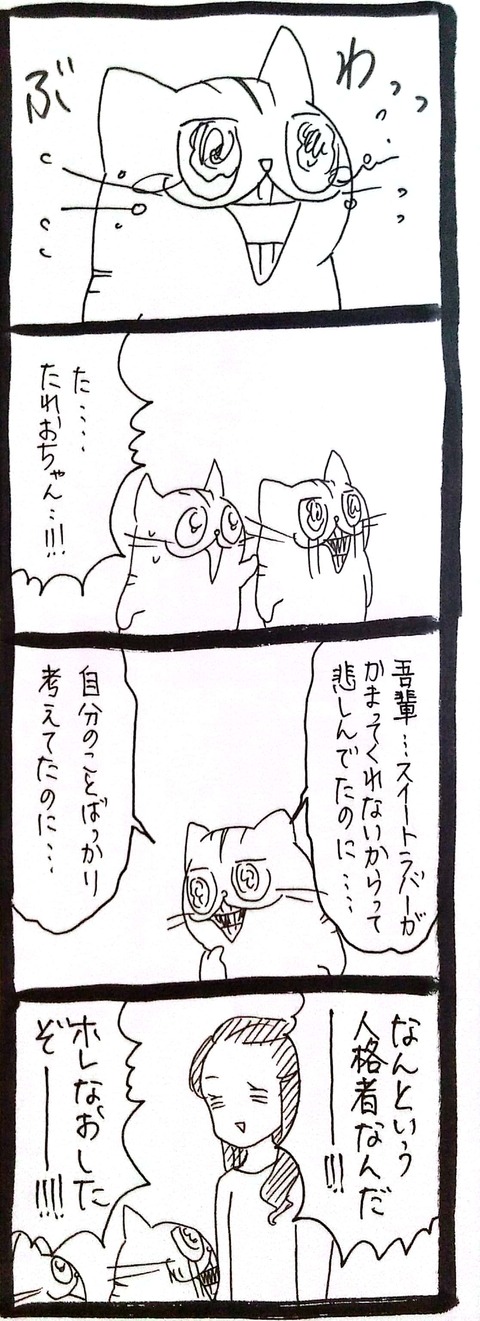 ぶわっっ
た‥‥
たれおちゃん‥!!!
吾輩‥スイートラバーが
かまってくれないからって
悲しんでたのに‥‥
自分のことばっかり
考えてたのに‥‥
なんという
人格者なんだ
ーー!!!
ホレなおした
ぞーー!!!!